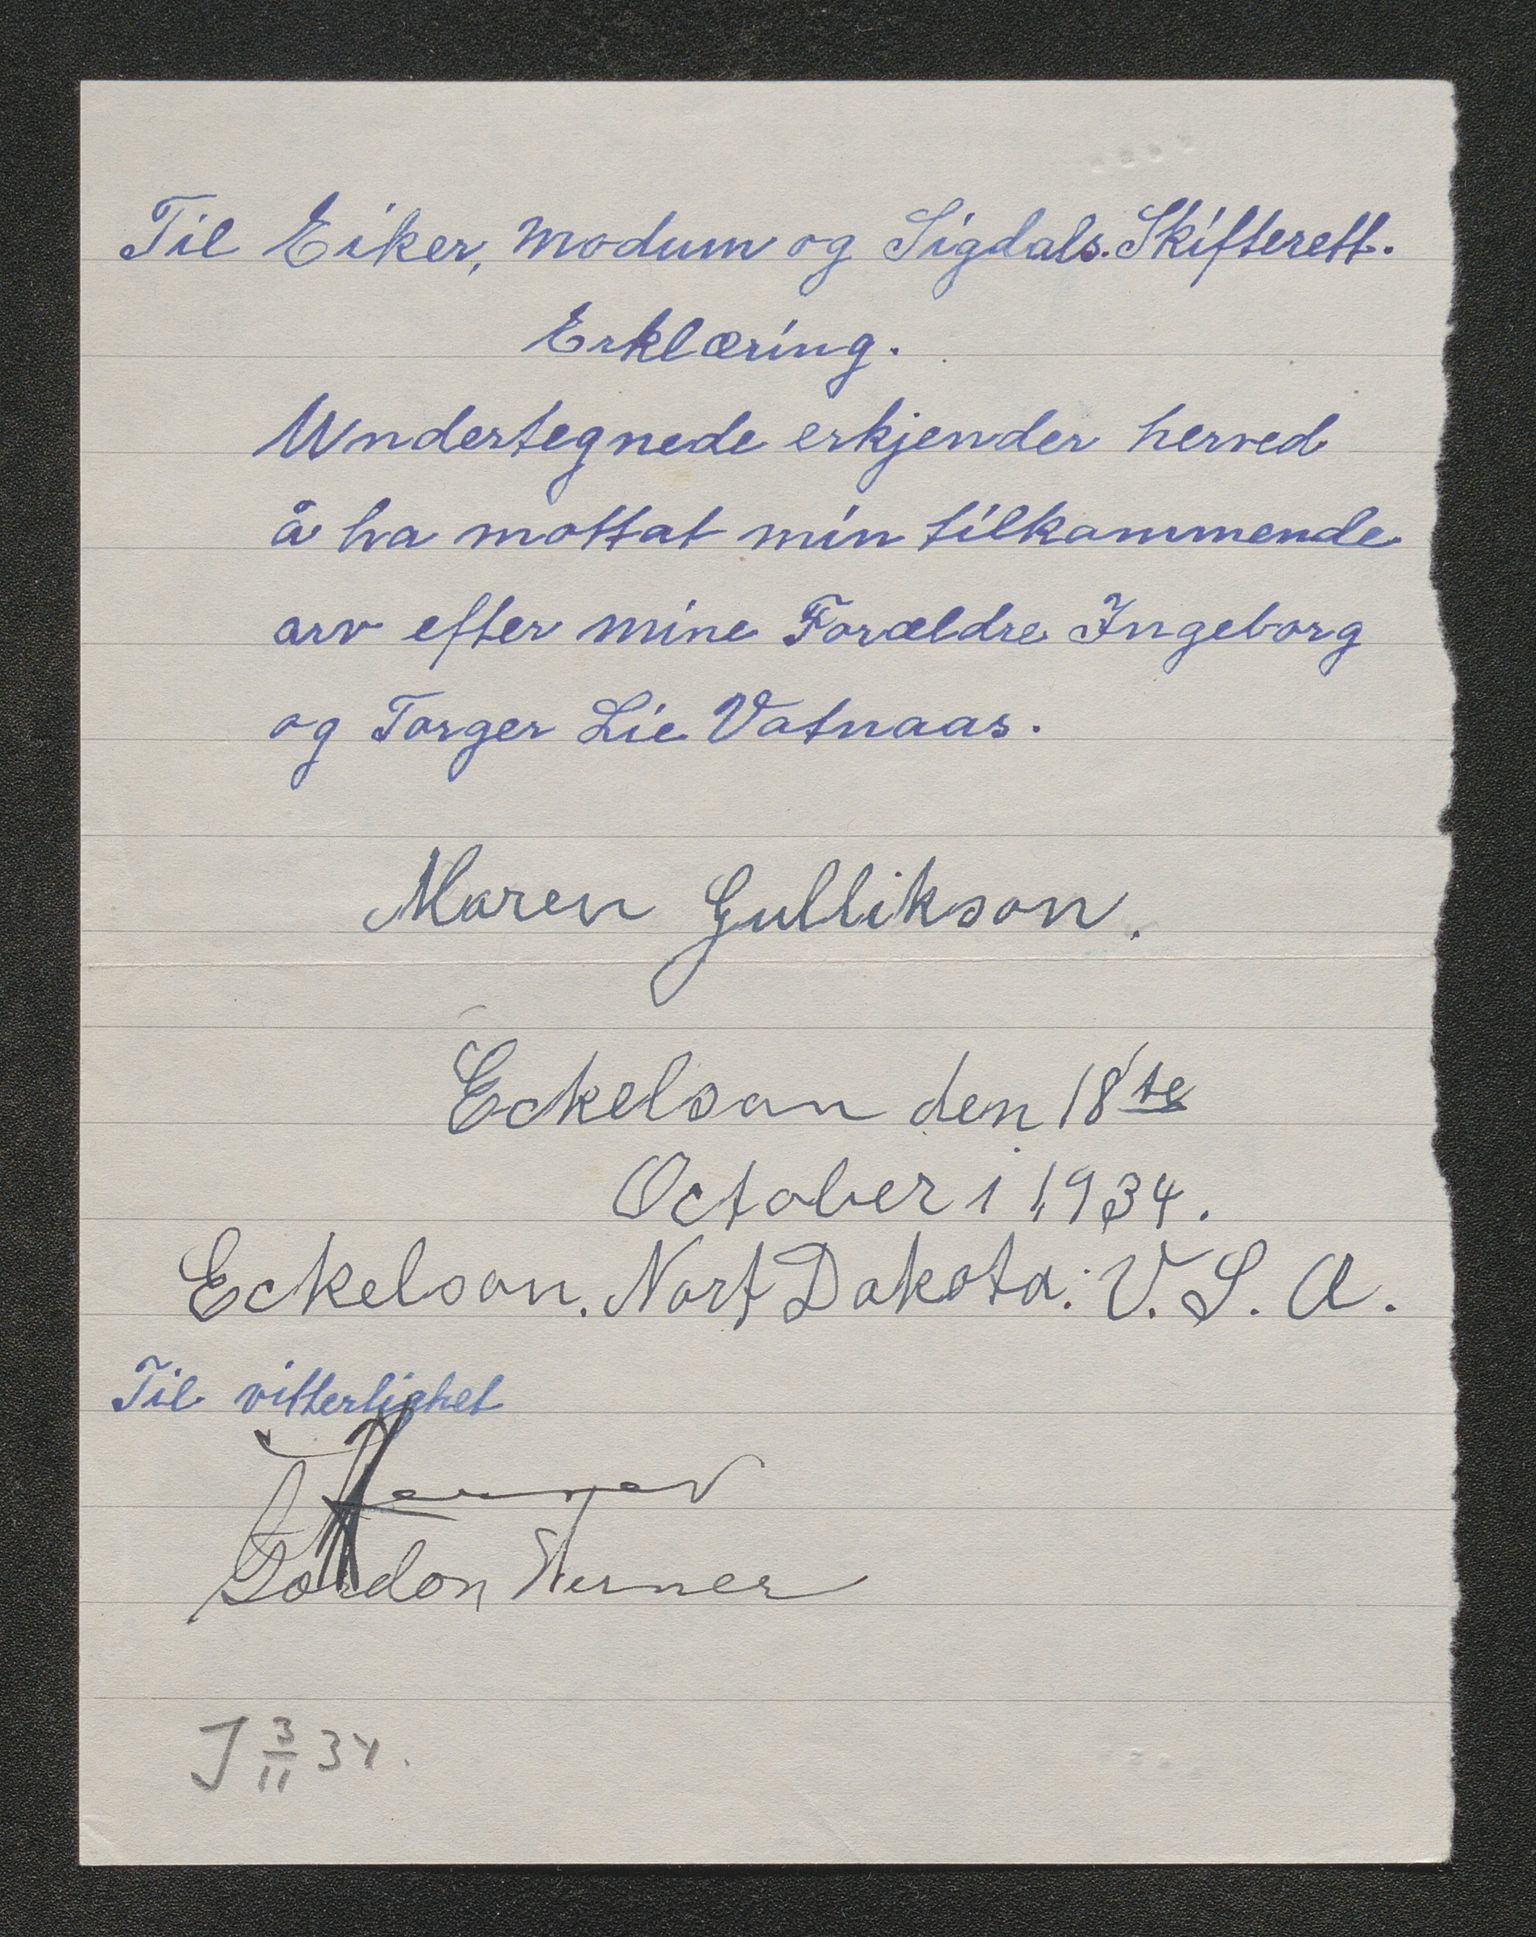 Til Eiker, Modum og Sigdals. Skifterett.
Erklæring.
Undertegnede erkjender herved
å ha mottat min tilkommende
arv efter mine Forældre Ingeborg
og Torger Lie Vatnaas.
Maren Gullikson.
Eckelson den 18te
October i 1934.
Eckelson. Nort Dakota. U. S. A.
Til vitterlighet
Gordon
J 3/11 34.